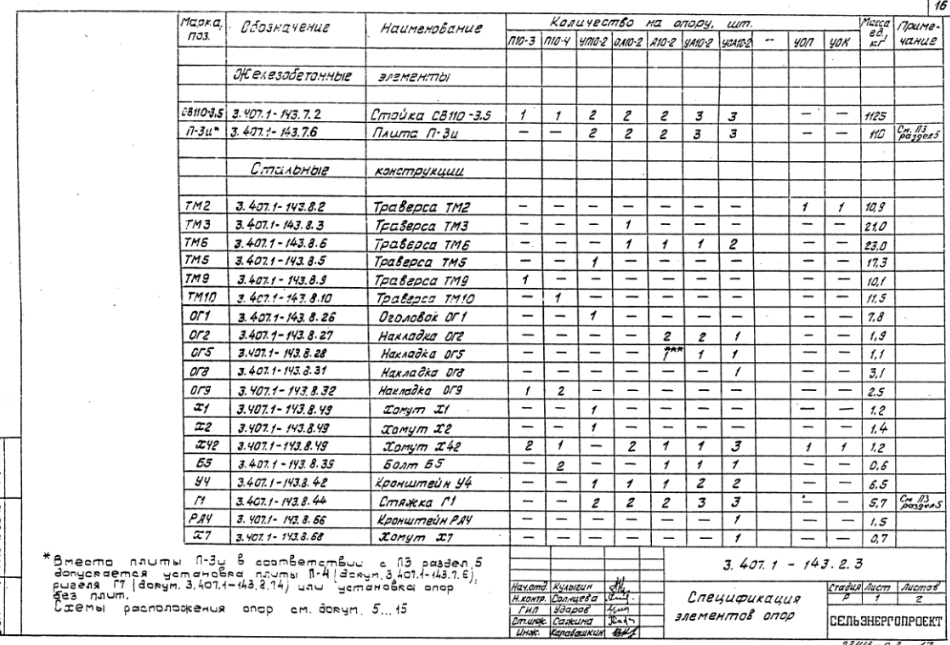 16
Марка, поз. Обозначение Наименование Количество на опору, шт. Масса ед., кг Примечание
П10-3 П10-4 УП10-2 ОА10-2 А10-2 УА10-2 УОА10-2 — УОП УОК
Железобетонные элементы
СВ110-3,5 3.407.1-143.7.2 Стойка СВ110-3.5 1 1 2 2 2 3 3 — — 1125
П-3и* 3.407.1-143.7.6 Плита П-3и — — 2 2 2 3 3 — — 110 См. ПЗ раздел 5
Стальные конструкции
ТМ2 3.407.1-143.8.2 Траверса ТМ2 — — — — — — — 1 1 10,9
ТМ3 3.407.1-143.8.3 Траверса ТМ3 — — — 1 — — — — — 21,0
ТМ6 3.407.1-143.8.6 Траверса ТМ6 — — — 1 1 1 2 — — 23,0
ТМ5 3.407.1-143.8.5 Траверса ТМ5 — — 1 — — — — — — 17,3
ТМ9 3.407.1-143.8.9 Траверса ТМ9 1 — — — — — — — — 10,1
ТМ10 3.407.1-143.8.10 Траверса ТМ10 — 1 — — — — — — — 11,5
ОГ1 3.407.1-143.8.26 Оголовок ОГ1 — — 1 — — — — — — 7,8
ОГ2 3.407.1-143.8.27 Накладка ОГ2 — — — — 2 2 1 — — 1,9
ОГ5 3.407.1-143.8.28 Накладка ОГ5 — — — — 1*** 1 1 — — 1,1
ОГ8 3.407.1-143.8.31 Накладка ОГ8 — — — — — — 1 — — 3,1
ОГ9 3.407.1-143.8.32 Накладка ОГ9 1 2 — — — — — — — 2.5
Х1 3.407.1-143.8.49 Хомут Х1 — — 1 — — — — — — 1,2
Х2 3.407.1-143.8.49 Хомут Х2 — — 1 — — — — — — 1,4
Х42 3.407.1-143.8.49 Хомут Х42 2 1 — 2 1 1 3 1 1 1,2
Б5 3.407.1-143.8.39 Болт Б5 — 2 — — 1 1 1 — — 0,6
У4 3.407.1-143.8.42 Кронштейн У4 — — 1 1 1 2 2 — — 6,5
Г1 3.407.1-143.8.44 Стяжка Г1 — — 2 2 2 3 3 — — 5,7 См. ПЗ раздел 5
РА4 3.407.1-143.8.66 Кронштейн РА4 — — — — — — 1 — — 1,5
Х7 3.407.1-143.8.68 Хомут Х7 — — — — — — 1 — — 0,7
* Вместо плиты П-3и в соответствии с ПЗ раздел 5
допускается установка плиты П-4 (докум. 3.407.1-143.7.6),
ригеля Г7 (докум. 3.407.1-143.8.74) или установка опор
без плит.
Схемы расположения опор см. докум. 5...15
3.407.1-143.2.3
Нач.отд. Кулыгин
Н.контр. Солнцева
ГИП Ударов
Ст.инж.
Инж. Карабашкин
Спецификация элементов опор
Стадия Лист Листов
Р 1 2
СЕЛЬЭНЕРГОПРОЕКТ